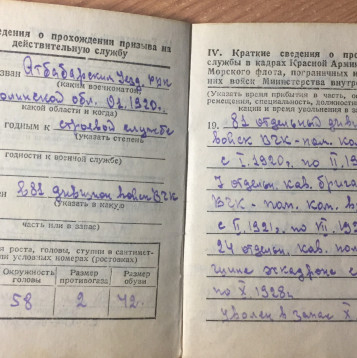 ведения о прохождения призыва на
действительную службу
зван Атбасарским Уезд. РВК
(каким военкоматом)
обл. 01.1920г.
какой области и когда)
годным к строевой службе
(указать степень
годности к военной службе)
в 81 дивизион войск ВЧК
(указать в какую
часть или в запас)
я роста, головы, ступни в сантимет-
ли условных номерах (ростовках)
Окружность головы Размер противогаза Размер обуви
58 2 42
IV. Краткие сведения о про
службы в кадрах Красной Арми
Морского флота, пограничных и
них войск Министерства внутр
(Указать время прибытия в часть, на
ремещения, специальность, должности
кации и время увольнения в зап
19. 81 отдельный див
войск ВЧК - пом. ком.
с I.1920г. по II.19
7 отделн. кав. брига
ВЧК - пом. ком. вз
с II.1921г. по VII.19
24 отделн. кав. пол
эскадрона с
по X.1928г.
уволен в запас X.